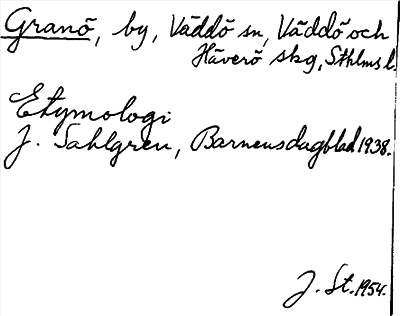 Granö, by, Väddö sn, Väddö och
Häverö skg, Sthlms l.
Etymologi
J. Sahlgren, Barnens dagblad 1938.
J. St. 1954.